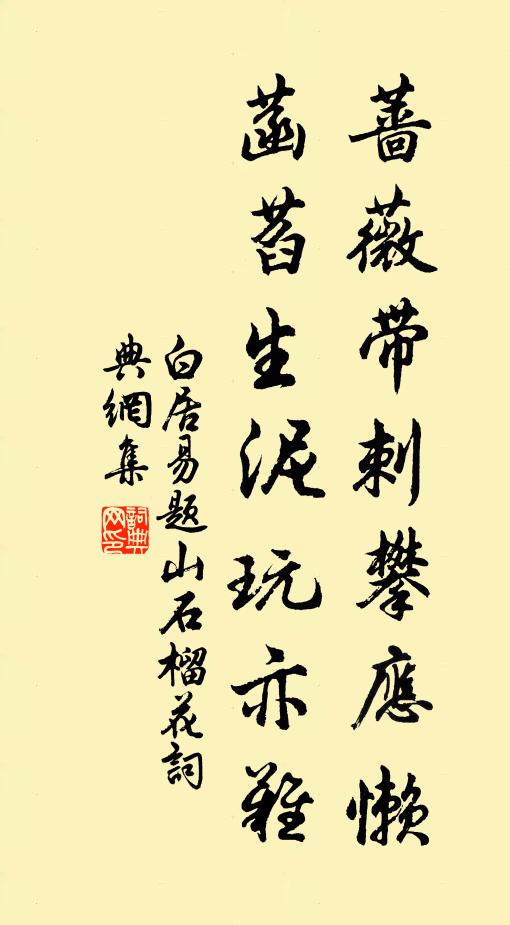 薔薇带刺攀應懶
菡萏生泥玩亦難
白居易题山石榴花詞
典網集
詞典网印